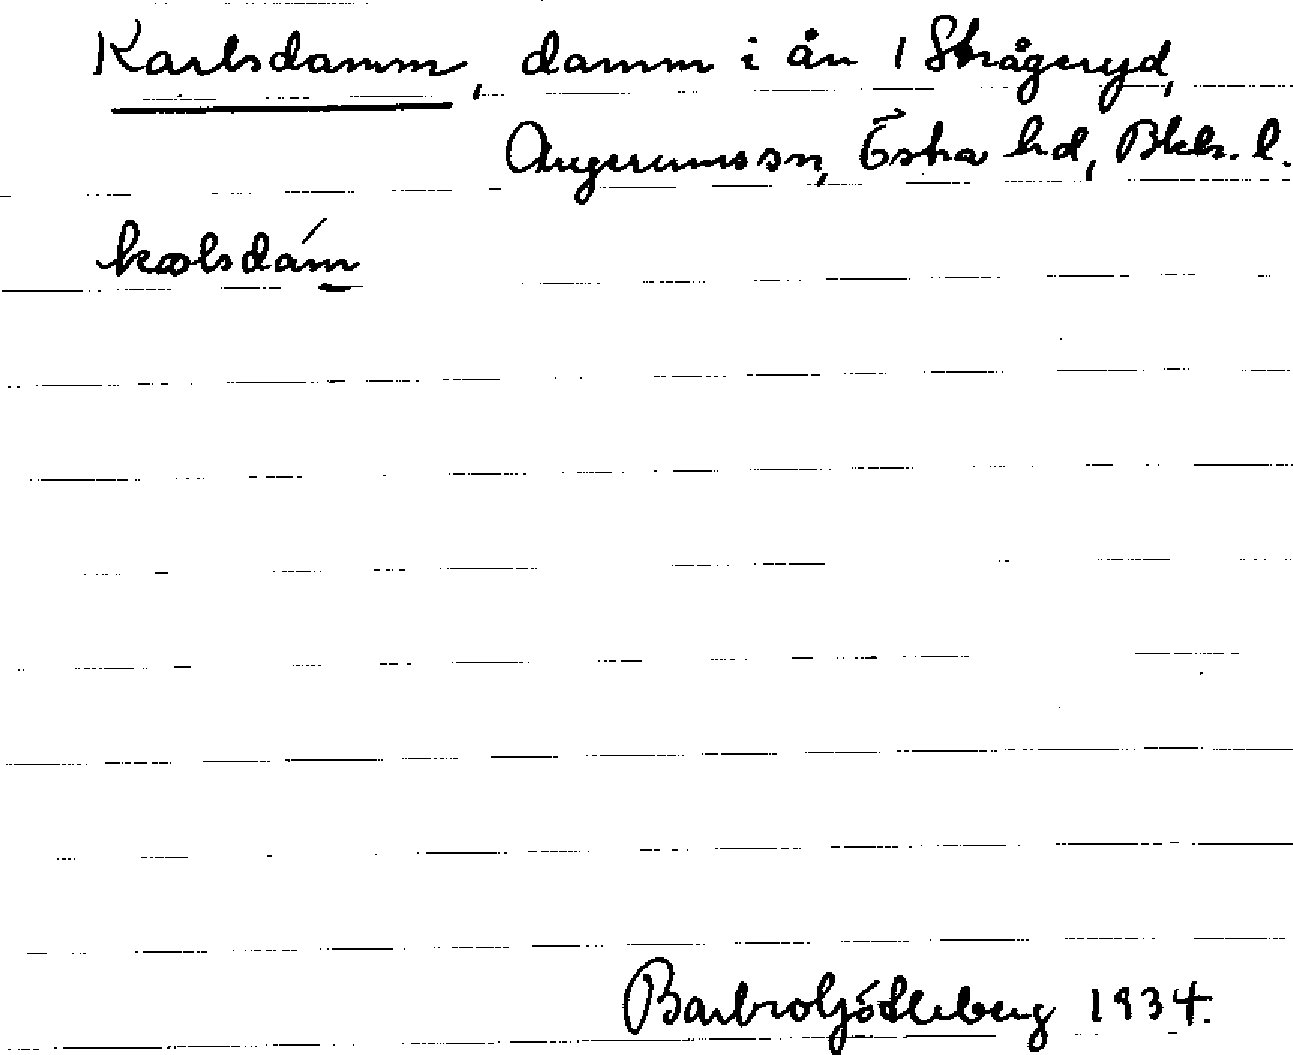 Karlsdamm, damm i ån i Strågeryd,
Augerums sn, Östra hd, Blek. l.
kalsdám
Barbro Götleberg 1934.